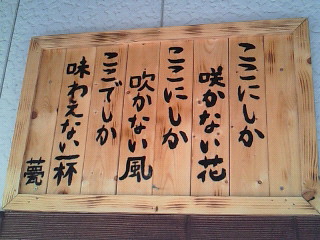 ここにしか
咲かない花
ここにしか
吹かない風
ここでしか
味わえない一杯